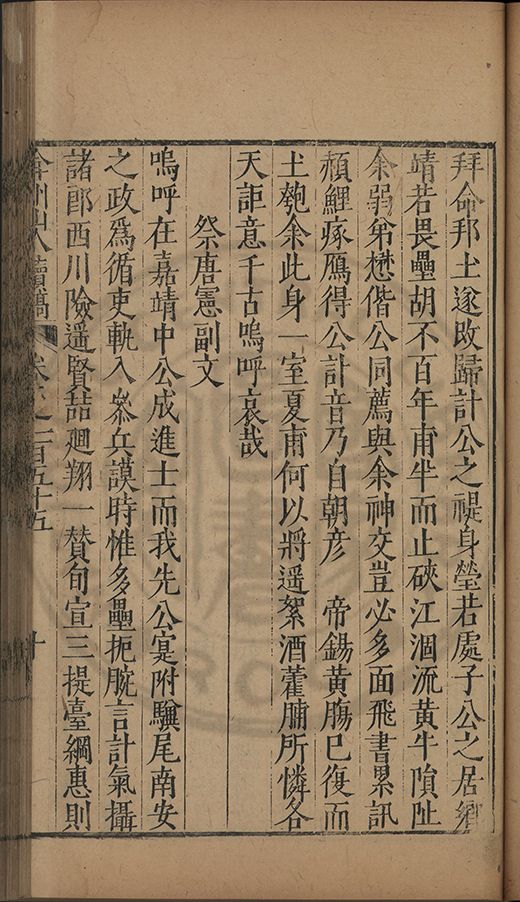 拜命邦土遂改歸計公之禔身瑩若處子公之居鄉
靖若畏壘胡不百年甫半而止硤江涸流黃牛隕阯
余弱弟懋偕公同薦與余神交豈必多面飛書累訊
頳鯉瘃鴈得公訃音乃自朝彥　帝錫黃腸巳復而
土匏余此身一室夏甫何以將遥絮酒藿脯所憐各
天詎意千古嗚呼哀哉
祭唐憲副文
嗚呼在嘉靖中公成進士而我先公寔附驥尾南安
之政爲循吏軌入叅兵謨時惟多壘扼腕言計氣攝
諸郎西川險遥賢喆廻翔一賛旬宣三提臺綱惠則
弇州山人續稿　卷之一百五十五　十